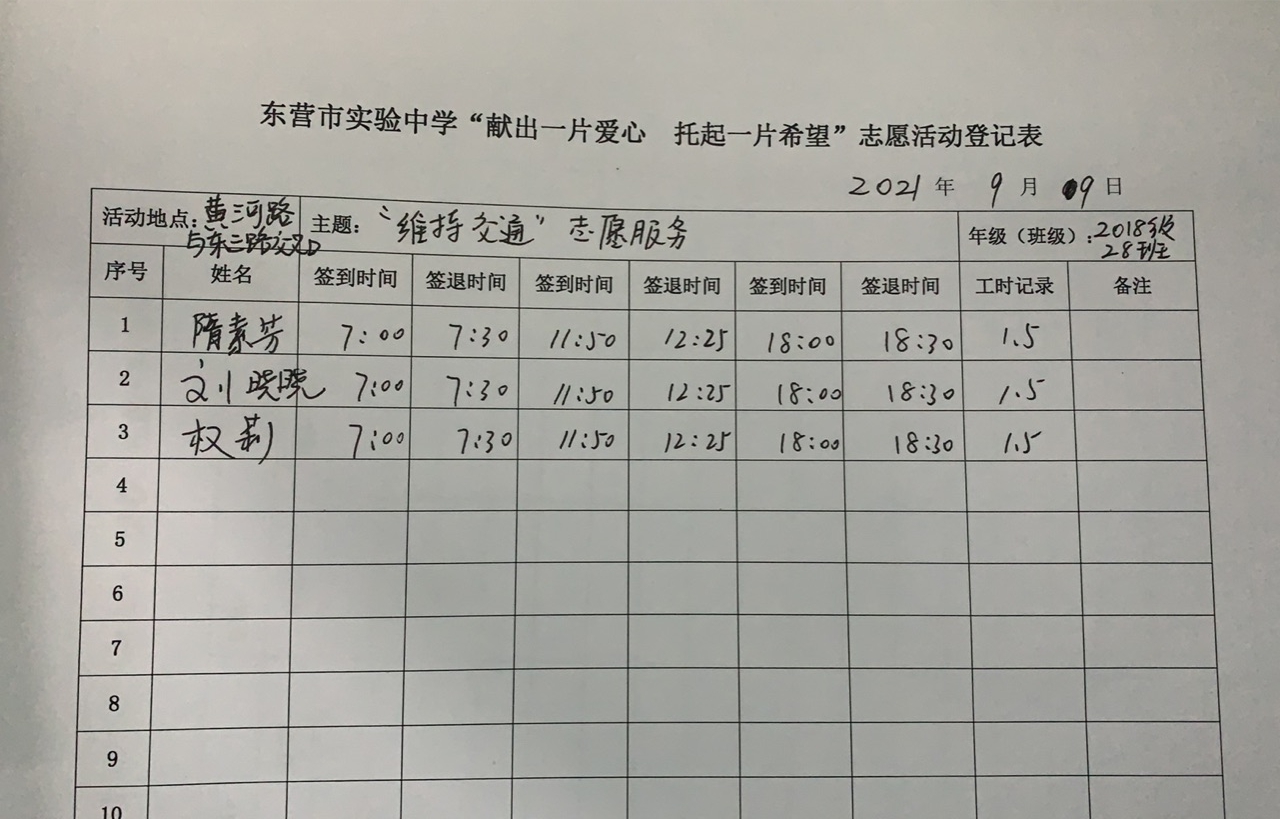 东营市实验中学“献出一片爱心 托起一片希望”志愿活动登记表
2021 年 9 月 09 日
活动地点：黄河路与东三路交叉口 主题：“维持交通”志愿服务 年级（班级）：2018级28班
序号 姓名 签到时间 签退时间 签到时间 签退时间 签到时间 签退时间 工时记录 备注
1 隋素芳 7:00 7:30 11:50 12:25 18:00 18:30 1.5
2 刘晓晓 7:00 7:30 11:50 12:25 18:00 18:30 1.5
3 权莉 7:00 7:30 11:50 12:25 18:00 18:30 1.5
4
5
6
7
8
9
10